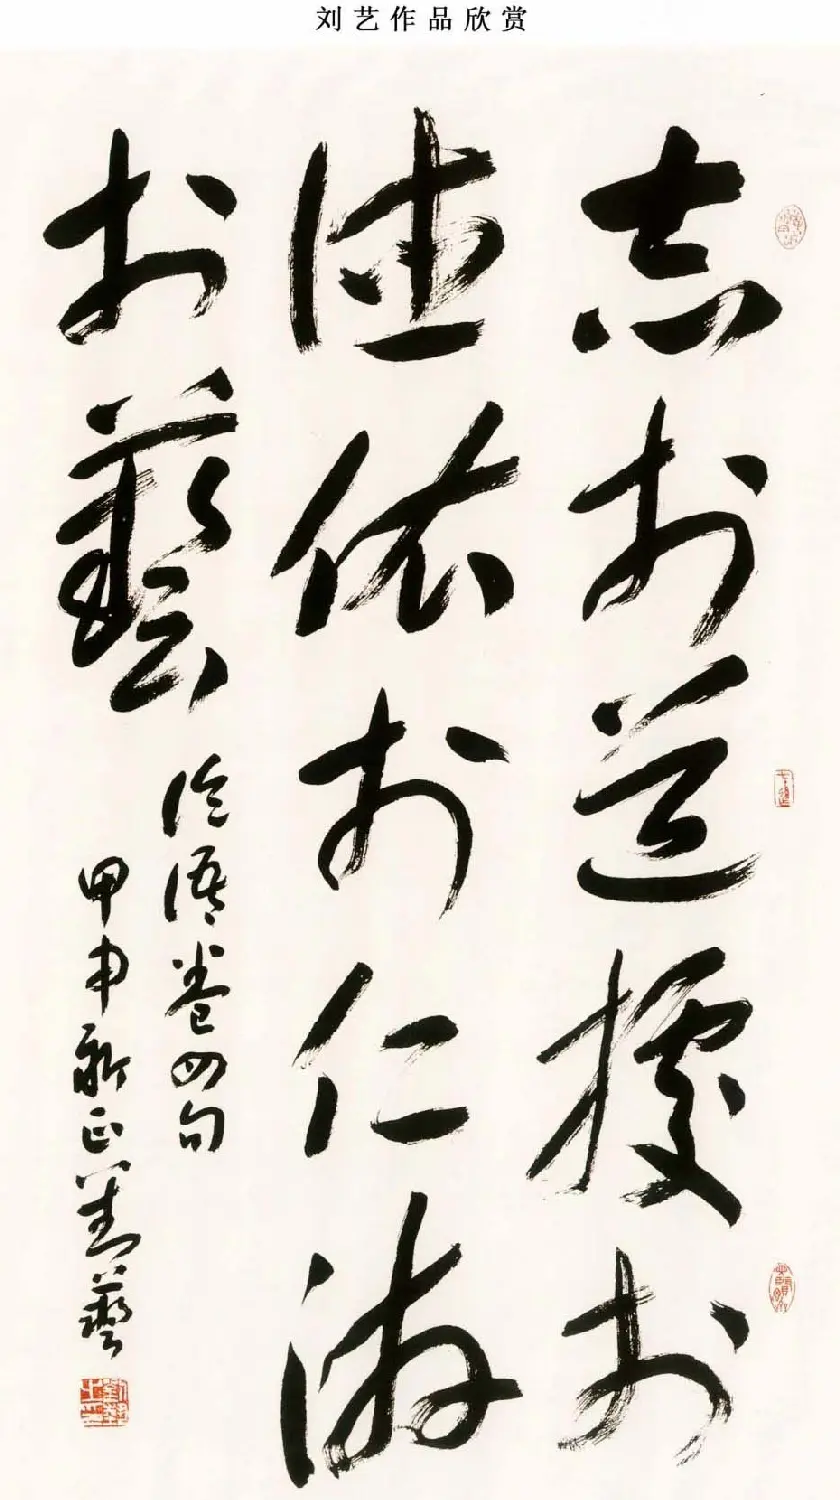 刘艺作品欣赏
志於道據於
德依於仁游
於藝
论语卷四句
甲申新正刘藝